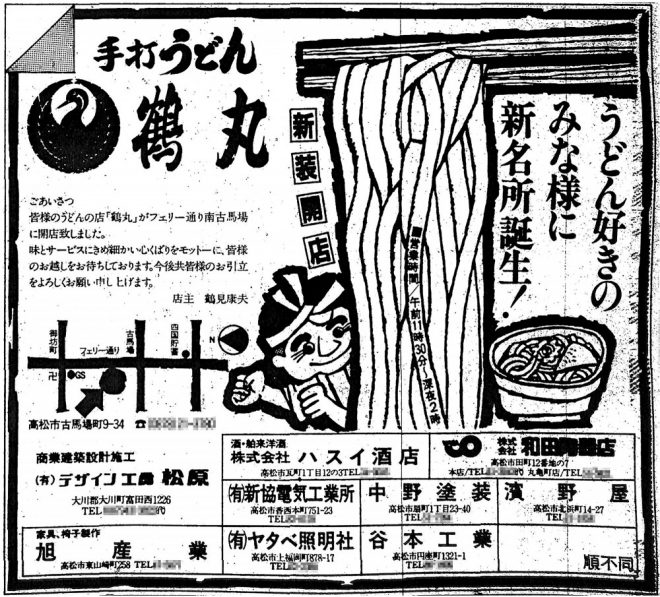 手打うどん
鶴丸
新装開店
うどん好きの
みな様に
新名所誕生!
ごあいさつ
皆様のうどんの店「鶴丸」がフェリー通り南古馬場
に開店致しました。
味とサービスにきめ細かい心くばりをモットーに、皆様
のお越しをお待ちしております。今後共皆様のお引立
をよろしくお願い申し上げます。
店主 鶴見康夫
営業時間/午前11時30分〜深夜2時
御坊町
古馬場
四国貯蓄
フェリー通り
N
卍
GS
高松市古馬場町9-34 ☎
商業建築設計施工
(有)デザイン工房 松原
大川郡大川町富田西1226
TEL
酒・舶来洋酒
株式会社 ハスイ酒店
高松市瓦町1丁目12の3TEL
株式会社 和田陶器店
高松市田町12番地の7
本店/TEL 丸亀町店/TEL
(有)新協電気工業所
高松市香西本町751-23
TEL
中野塗装
高松市扇町1丁目23-40
TEL
濱野屋
高松市北浜町14-27
TEL
家具、椅子製作
旭産業
高松市東山崎町258 TEL
(有)ヤタベ照明社
高松市上福岡町878-17
TEL
谷本工業
高松市円座町1321-1
TEL
順不同